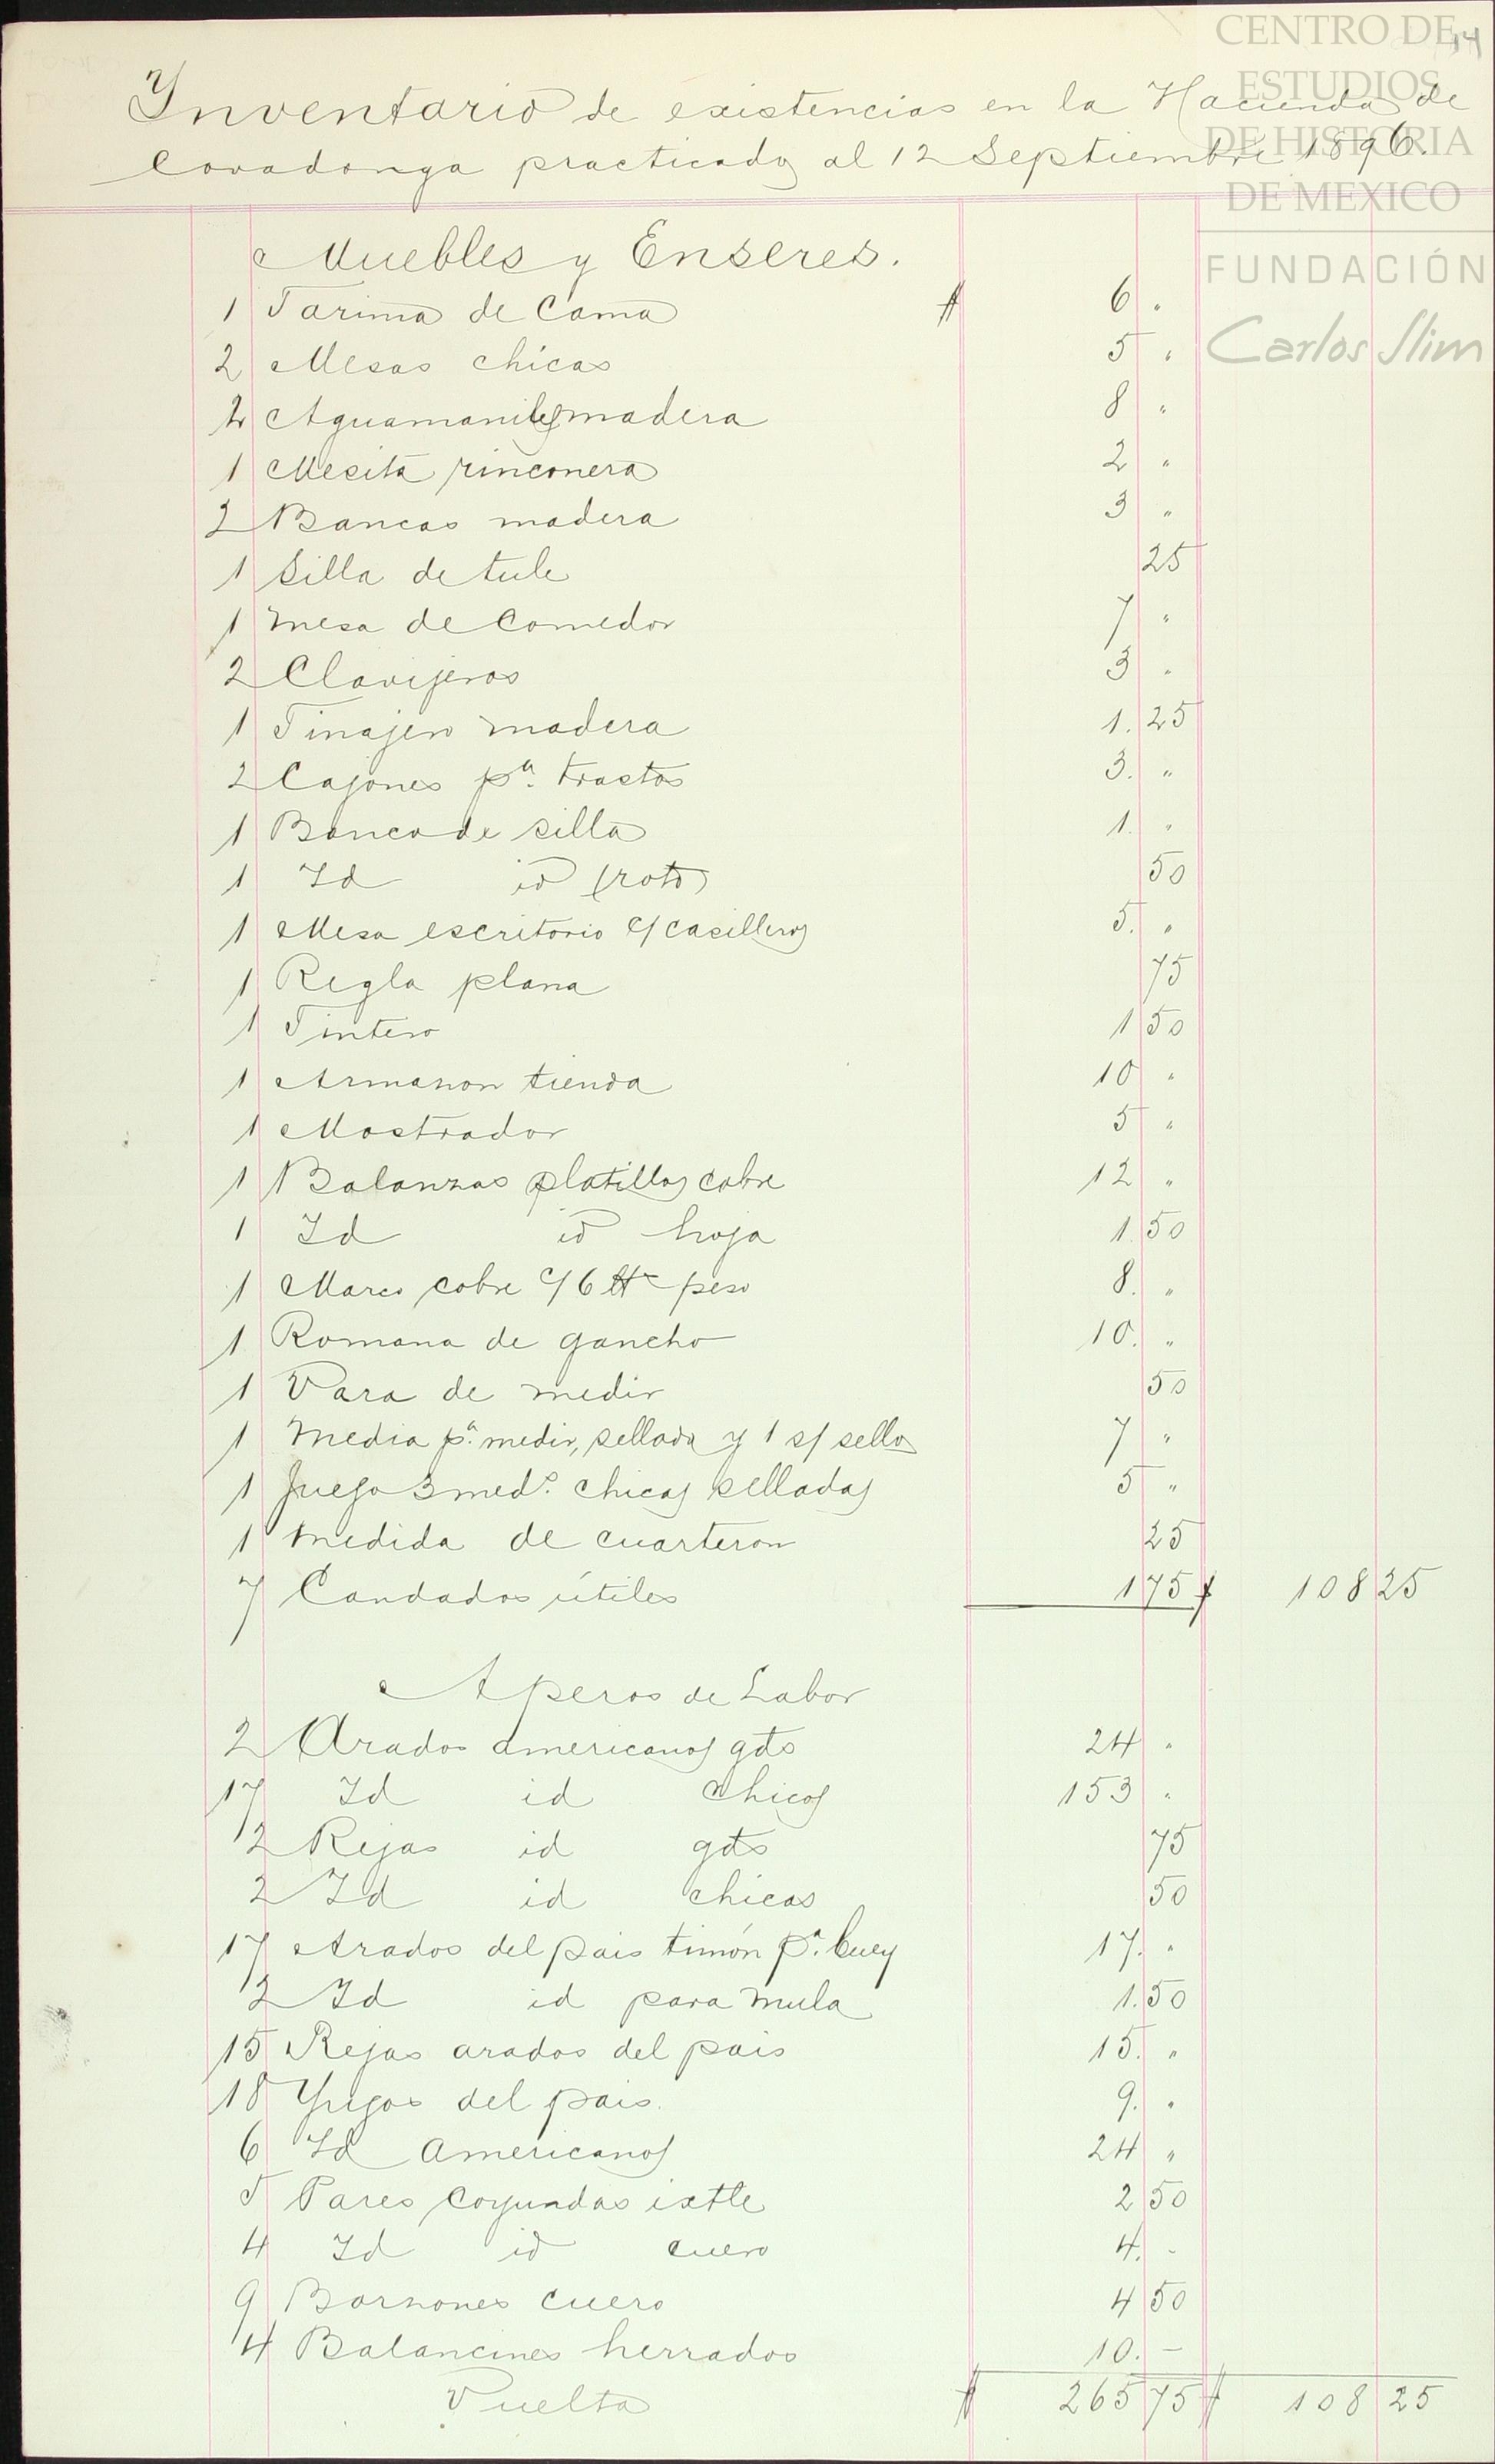 CENTRO DE
ESTUDIOS
DE HISTORIA
DE MEXICO
FUNDACIÓN
Carlos Slim
14
Inventario de existencias en la Hacienda de
Covadonga practicado al 12 Septiembre 1896.
Muebles y Enseres.
1 Tarima de Cama $ 6 "
2 Mesas chicas 5 "
2 Aguamaniles madera 8 "
1 Mesita rinconera 2 "
2 Bancas madera 3 "
1 Silla de tule 25
1 Mesa de Comedor 7 "
2 Clavijeros 3 "
1 Tinajero madera 1. 25
2 Cajones pa. trastos 3. "
1 Banco de silla 1. "
1 Id id (roto) 50
1 Mesa escritorio c/ casilleros 5. "
1 Regla plana 75
1 Tintero 1 50
1 Armason tienda 10 "
1 Mostrador 5 "
1 Balanzas platillos cobre 12 "
1 Id id hoja 1. 50
1 Marco cobre c/ 6 lbs peso 8. "
1 Romana de gancho 10. "
1 Vara de medir 50
1 Media pa. medir, sellada y 1 s/ sello 7 "
1 Juego 3 meds. chicas selladas 5 "
1 Medida de cuarteron 25
7 Candados útiles 1 75 $ 108 25
Aperos de Labor
2 Arados americanos gds 24 "
17 Id id chicos 153 "
2 Rejas id gds 75
2 Id id chicas 50
17 Arados del pais timón pa. buey 17. "
2 Id id para mula 1. 50
15 Rejas arados del pais 15. "
18 Yugos del pais. 9. "
6 Id Americanos 24 "
5 Pares Coyundas ixtle 2 50
4 Id id cuero 4. -
9 Barzones cuero 4 50
4 Balancines herrados 10. -
Vuelta $ 265 75 $ 108 25